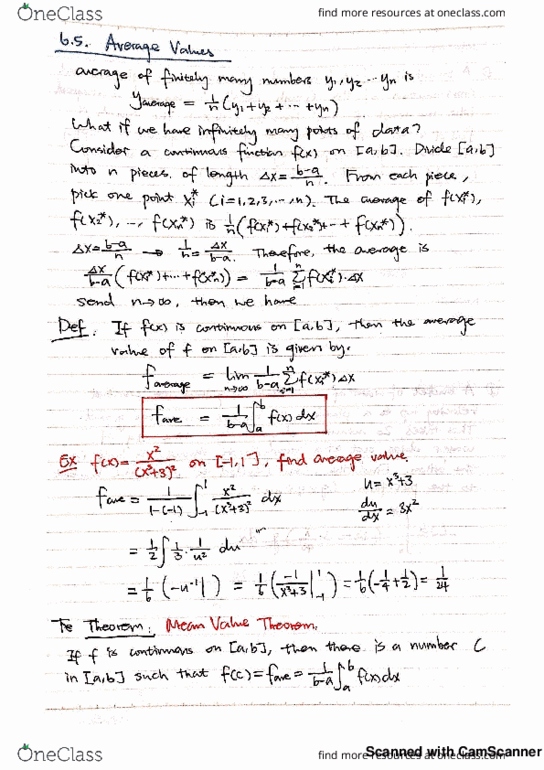 OneClass
find more resources at oneclass.com
6.5. Average Values
average of finitely many numbers y₁, y₂ ··· yn is
yaverage = 1/n (y₁ + y₂ + ··· + yn)
What if we have infinitely many points of data?
Consider a continuous function f(x) on [a,b]. Divide [a,b]
into n pieces of length Δx = (b-a)/n. From each piece,
pick one point xi* (i=1,2,3,···,n). The average of f(x₁*),
f(x₂*), ···, f(xn*) is 1/n (f(x₁*) + f(x₂*) + ··· + f(xn*)).
Δx = (b-a)/n → 1/n = Δx/(b-a). Therefore, the average is
Δx/(b-a) (f(x₁*) + ··· + f(xn*)) = 1/(b-a) Σⁿᵢ₌₁ f(xi*)·Δx
send n→∞, then we have
Def. If f(x) is continuous on [a,b], then the average
value of f on [a,b] is given by.
faverage = lim n→∞ 1/(b-a) Σⁿᵢ₌₁ f(xi*) Δx
fave = 1/(b-a) ∫ₐᵇ f(x) dx
Ex f(x) = x²/(x³+3)² on [-1,1], find average value.
fave = 1/(1-(-1)) ∫₋₁¹ x²/(x³+3)² dx
u = x³+3
du/dx = 3x²
= 1/2 ∫ 1/3 · 1/u² du
= 1/6 (-u⁻¹|) = 1/6 (-1/(x³+3) |₋₁¹) = 1/6 (-1/4 + 1/2) = 1/24
Theorem: Mean Value Theorem.
If f is continuous on [a,b], then there is a number C
in [a,b] such that f(c) = fave = 1/(b-a) ∫ₐᵇ f(x) dx
OneClass
find more resources at oneclass.com
Scanned with CamScanner